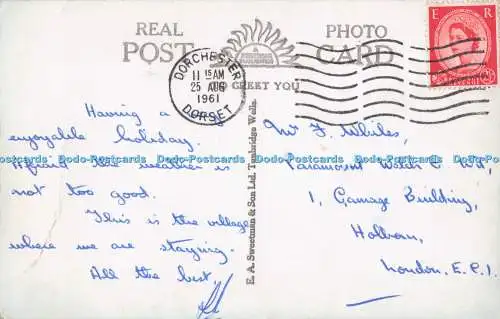 REAL PHOTO
POST CARD
TO GREET YOU
E R
DORCHESTER
11 15 AM
25 AUG
1961
DORSET
Having a
enjoyable holiday.
Afraid the weather is
not too good.
This is the village
where we are staying.
All the best.
E. A. Sweetman & Son Ltd. Tunbridge Wells.
Mr F. Whiles,
Paramount Watch C. Ltd,
1, Gamage Building,
Holborn,
London. E.C.1.
Dodo-Postcards Dodo-Postcards Dodo-Postcards Dodo-Postcards Dodo-Postcards Dodo-Postcards